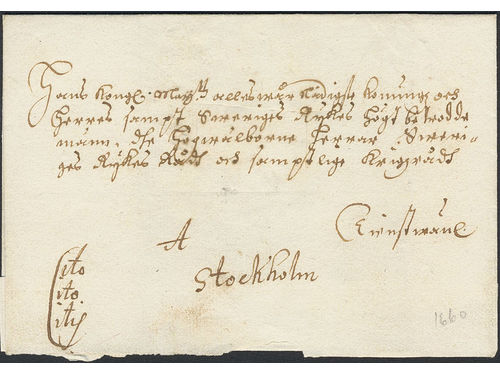 Hans Kongl. May:tt alles wår Nådigste Konungs och
Herres sampt Sweriges Rykes högt betrodde
männ, dhe Högwälborne Herrar Sweri-
ges Rykes Rådh och sampstlige Krigzrådh
A
Stockholm
Cito
ito
itiss
1660